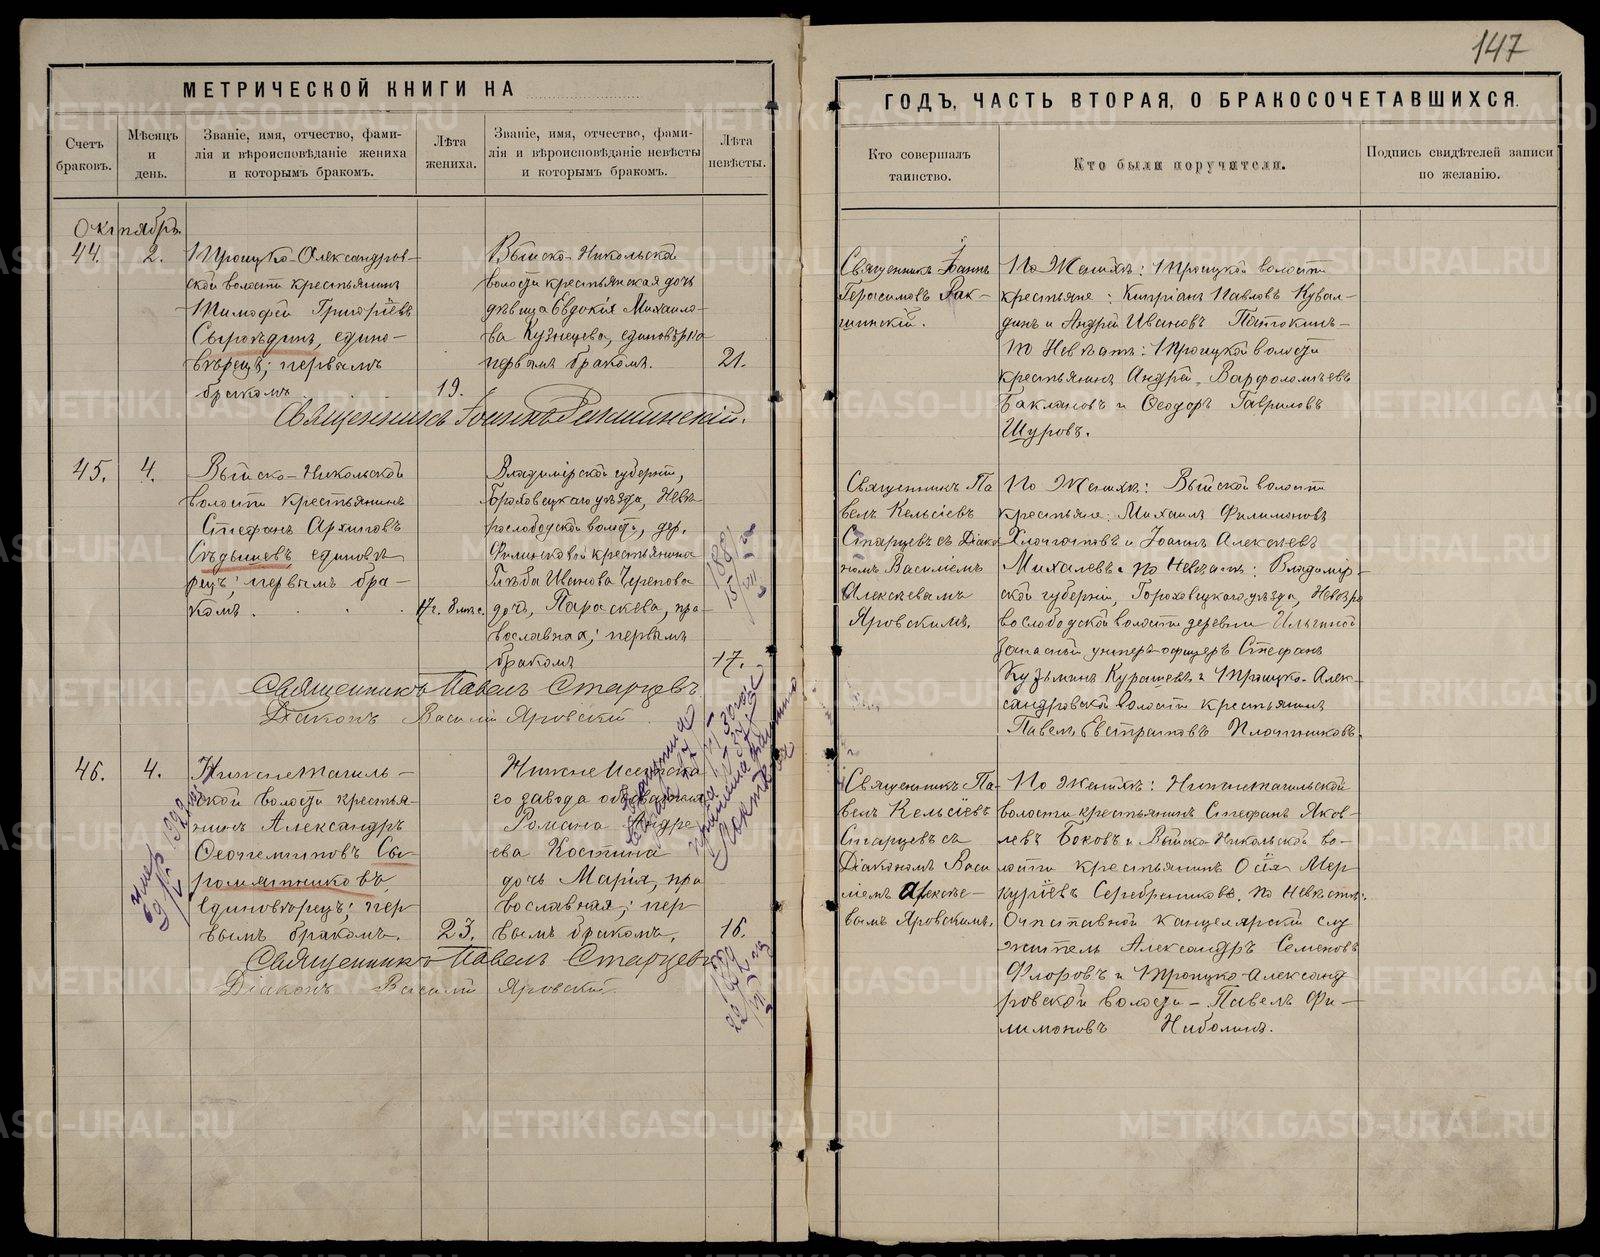 147
МЕТРИЧЕСКОЙ КНИГИ НА
ГОДЪ, ЧАСТЬ ВТОРАЯ, О БРАКОСОЧЕТАВШИХСЯ.
Счетъ
браковъ.
Мѣсяцъ
и
день.
Званіе, имя, отчество, фами-
лія и вѣроисповѣданіе жениха
и которымъ бракомъ.
Лѣта
жениха.
Званіе, имя, отчество, фами-
лія и вѣроисповѣданіе невѣсты
и которымъ бракомъ.
Лѣта
невѣсты.
Кто совершалъ
таинство.
Кто были поручители.
Подпись свидѣтелей записи
по желанію.
Октябрь
44.
2.
Троицко-Александров-
ской волости крестьянинъ
Тимофей Григоріевъ
Сыропядинъ, едино-
вѣрецъ; первымъ
бракомъ
19.
Выйско-Никольской
волости крестьянская дочь
дѣвица Евдокія Михайло-
ва Кузнецова, единовѣрка
первымъ бракомъ.
21.
Священникъ Іоаннъ Ракшинскій.
Священникъ Іоаннъ
Герасимовъ Рак-
шинскій.
По Женихѣ: Троицкой волости
крестьяне: Кипріанъ Павловъ Кувал-
динъ и Андрей Ивановъ
По Невѣстѣ: Троицкой волости
крестьянинъ Андрей Варфоломѣевъ
Баклановъ и Ѳеодоръ Гавриловъ
Щуровъ.
45.
4.
Выйско-Никольской
волости крестьянинъ
Стефанъ Архиповъ
Сѣдышевъ, единовѣ
рецъ; первымъ бра-
комъ.
17 г. 8 мѣс.
Владимірской губерніи,
Гороховецкаго уѣзда,
рослободской волости, дер.
Филинковой крестьянина
Глѣба Иванова Черепова
дочь, Параскева, пра
вославная; первымъ
бракомъ
17.
Священникъ Павелъ Старцевъ
Діаконъ Василій Яровскій.
Священникъ Па
велъ Кельсіевъ
Старцевъ съ Діако
номъ Василіемъ
Алексѣевымъ
Яровскимъ.
По Женихѣ: Выйской волости
крестьяне: Михаилъ Филимоновъ
и Іоаннъ Алексѣевъ
Михалевъ. по Невѣстѣ: Владимір-
ской губерніи, Гороховецкаго уѣзда,
вослободской волости деревни Ильиной
запасный унтеръ-офицеръ Стефанъ
Кузьминъ Курашевъ и Троицко-Алек-
сандровской волости крестьянинъ
Павелъ Евстратовъ Плотниковъ.
46.
4.
Нижнетагиль-
ской волости крестья-
нинъ Александръ
Ѳеопемптовъ Сы-
ромятниковъ,
единовѣрецъ; пер
вымъ бракомъ.
23.
Нижне Исетска
го завода обывателя
Романа Андре
ева Костина
дочь Марія, пра
вославная; пер
вымъ бракомъ.
16.
Священникъ Павелъ Старцевъ
Діаконъ Василій Яровскій.
Священникъ Па-
велъ Кельсіевъ
Старцевъ съ
Діакономъ Васи
ліемъ Алексѣе-
вымъ Яровскимъ.
По женихѣ: Нижнетагильской
волости крестьянинъ Стефанъ Яков-
левъ Боковъ и Выйско Никольской во-
лости крестьянинъ Осія Мер-
куріевъ Серебренниковъ. по невѣстѣ:
Отставной канцелярскій слу
житель Александръ Семеновъ
Флоровъ и Троицко-Александ
ровской волости - Павелъ Фи-
лимоновъ
METRIKI.GASO-URAL.RU